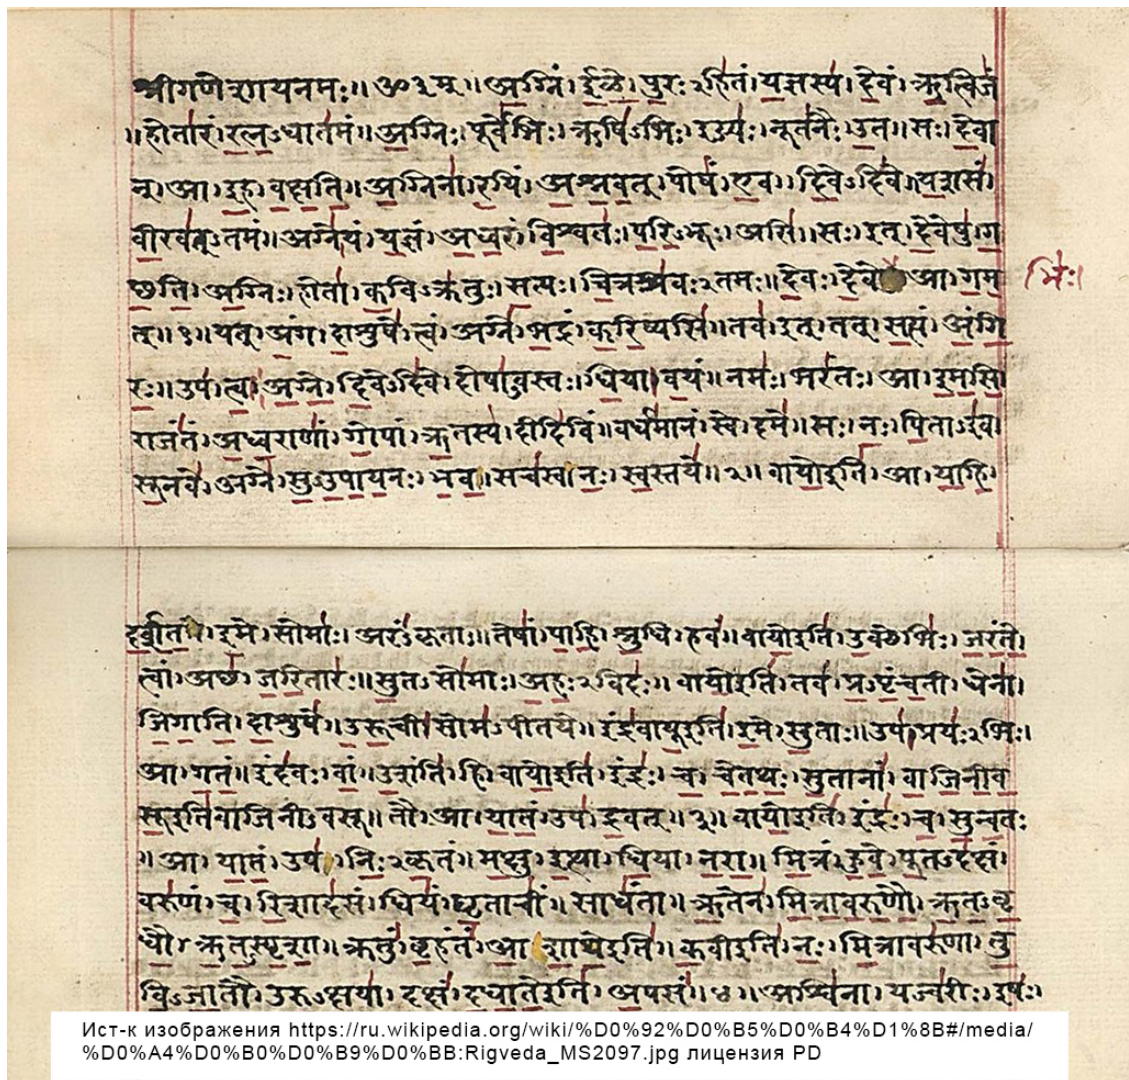 श्रीगणेशायनमः॥ॐ३म्॥अग्निं।ईळे।पुरःऽहितं।यज्ञस्य।देवं।ऋत्विजं
॥होतारं।रत्नऽधातमं॥अग्निः।पूर्वेभिः।ऋषिऽभिः।ईड्यः।नूतनैः।उत॥सः।देवा
न्।आ।इह।वक्षति॥अग्निना।रयिं।अश्नवत्।पोषं।एव।दिवेऽदिवे॥यशसं।
वीरवत्ऽतमं॥अग्नेयं।यज्ञं।अध्वरं।विश्वतः।परिऽभूः।असि॥सः।इत्।देवेषु।ग
छति।अग्निः।होता।कविऽक्रतुः।सत्यः।चित्रश्रवःऽतमः॥देवः।देवे आ।गम
भिः।
त्॥१॥यत्।अंग।दाशुषे।त्वं।अग्ने।भद्रं।करिष्यसि॥तव।इत्।तत्।सत्यं।अंगि
रः॥उप।त्वा।अग्ने।दिवेऽदिवे।दोषाऽवस्तः।धिया।वयं॥नमः।भरंतः।आ।इमसि।
राजंतं।अध्वराणां।गोपां।ऋतस्य।दीदिविं॥वर्धमानं।स्वे।दमे॥सः।नः।पिताऽइव।
सूनवे।अग्ने।सुऽउपायनः।भव॥सचस्व।नः।स्वस्तये॥२॥वायोइति।आ।याहि।
दर्शत।इमे।सोमाः।अरंऽकृताः॥तेषां।पाहि।श्रुधि।हवं॥वायोइति।उक्थेभिः।जरंते।
त्वां।अछ।जरितारः॥सुतऽसोमाः।अहःऽविदः॥वायोइति।तव।प्रऽपृंचती।धेना।
जिगाति।दाशुषे॥उरूची।सोमऽपीतये॥इंद्रवायूइति।इमे।सुताः॥उप।प्रयःऽभिः।
आ।गतं॥इंदवः।वां।उशंति।हि।वायोइति।इंद्रः।च।चेतथः।सुतानां।वाजिनीव
सूइतिवाजिनीऽवसू॥तौ।आ।यातं।उप।द्रवत्॥३॥वायोइति।इंद्रः।च।सुन्वतः
।आ।यातं।उप।निःऽकृतं॥मक्षु।इत्था।धिया।नरा॥मित्रं।हुवे।पूतऽदक्षं।
वरुणं।च।रिशादसं।धियं।घृताचीं॥साधंता॥ऋतेन।मित्रावरुणौ।ऋतऽवृ
धौ।ऋतऽस्पृशा॥क्रतुं।बृहंतं।आशाथेइति॥कवीइति।नः।मित्रावरुणा।तु
विऽजातौ।उरुऽक्षया।दक्षं।दधातेइति।अपसं॥४॥अश्विना।यज्वरीः।इषः।
Ист-к изображения https://ru.wikipedia.org/wiki/%D0%92%D0%B5%D0%B4%D1%8B#/media/
%D0%A4%D0%B0%D0%B9%D0%BB:Rigveda_MS2097.jpg лицензия PD